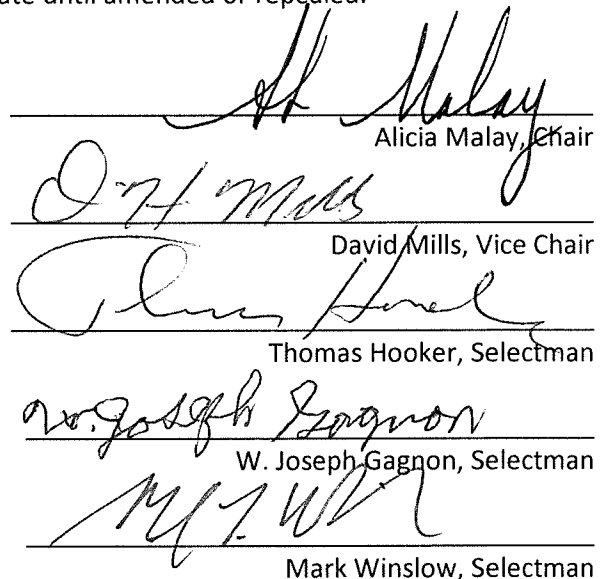 ate until amended or repealed.
Malay
Alicia Malay, Chair
D H Mills
David Mills, Vice Chair
Thomas Hooker, Selectman
W. Joseph Gagnon
W. Joseph Gagnon, Selectman
Mark Winslow, Selectman